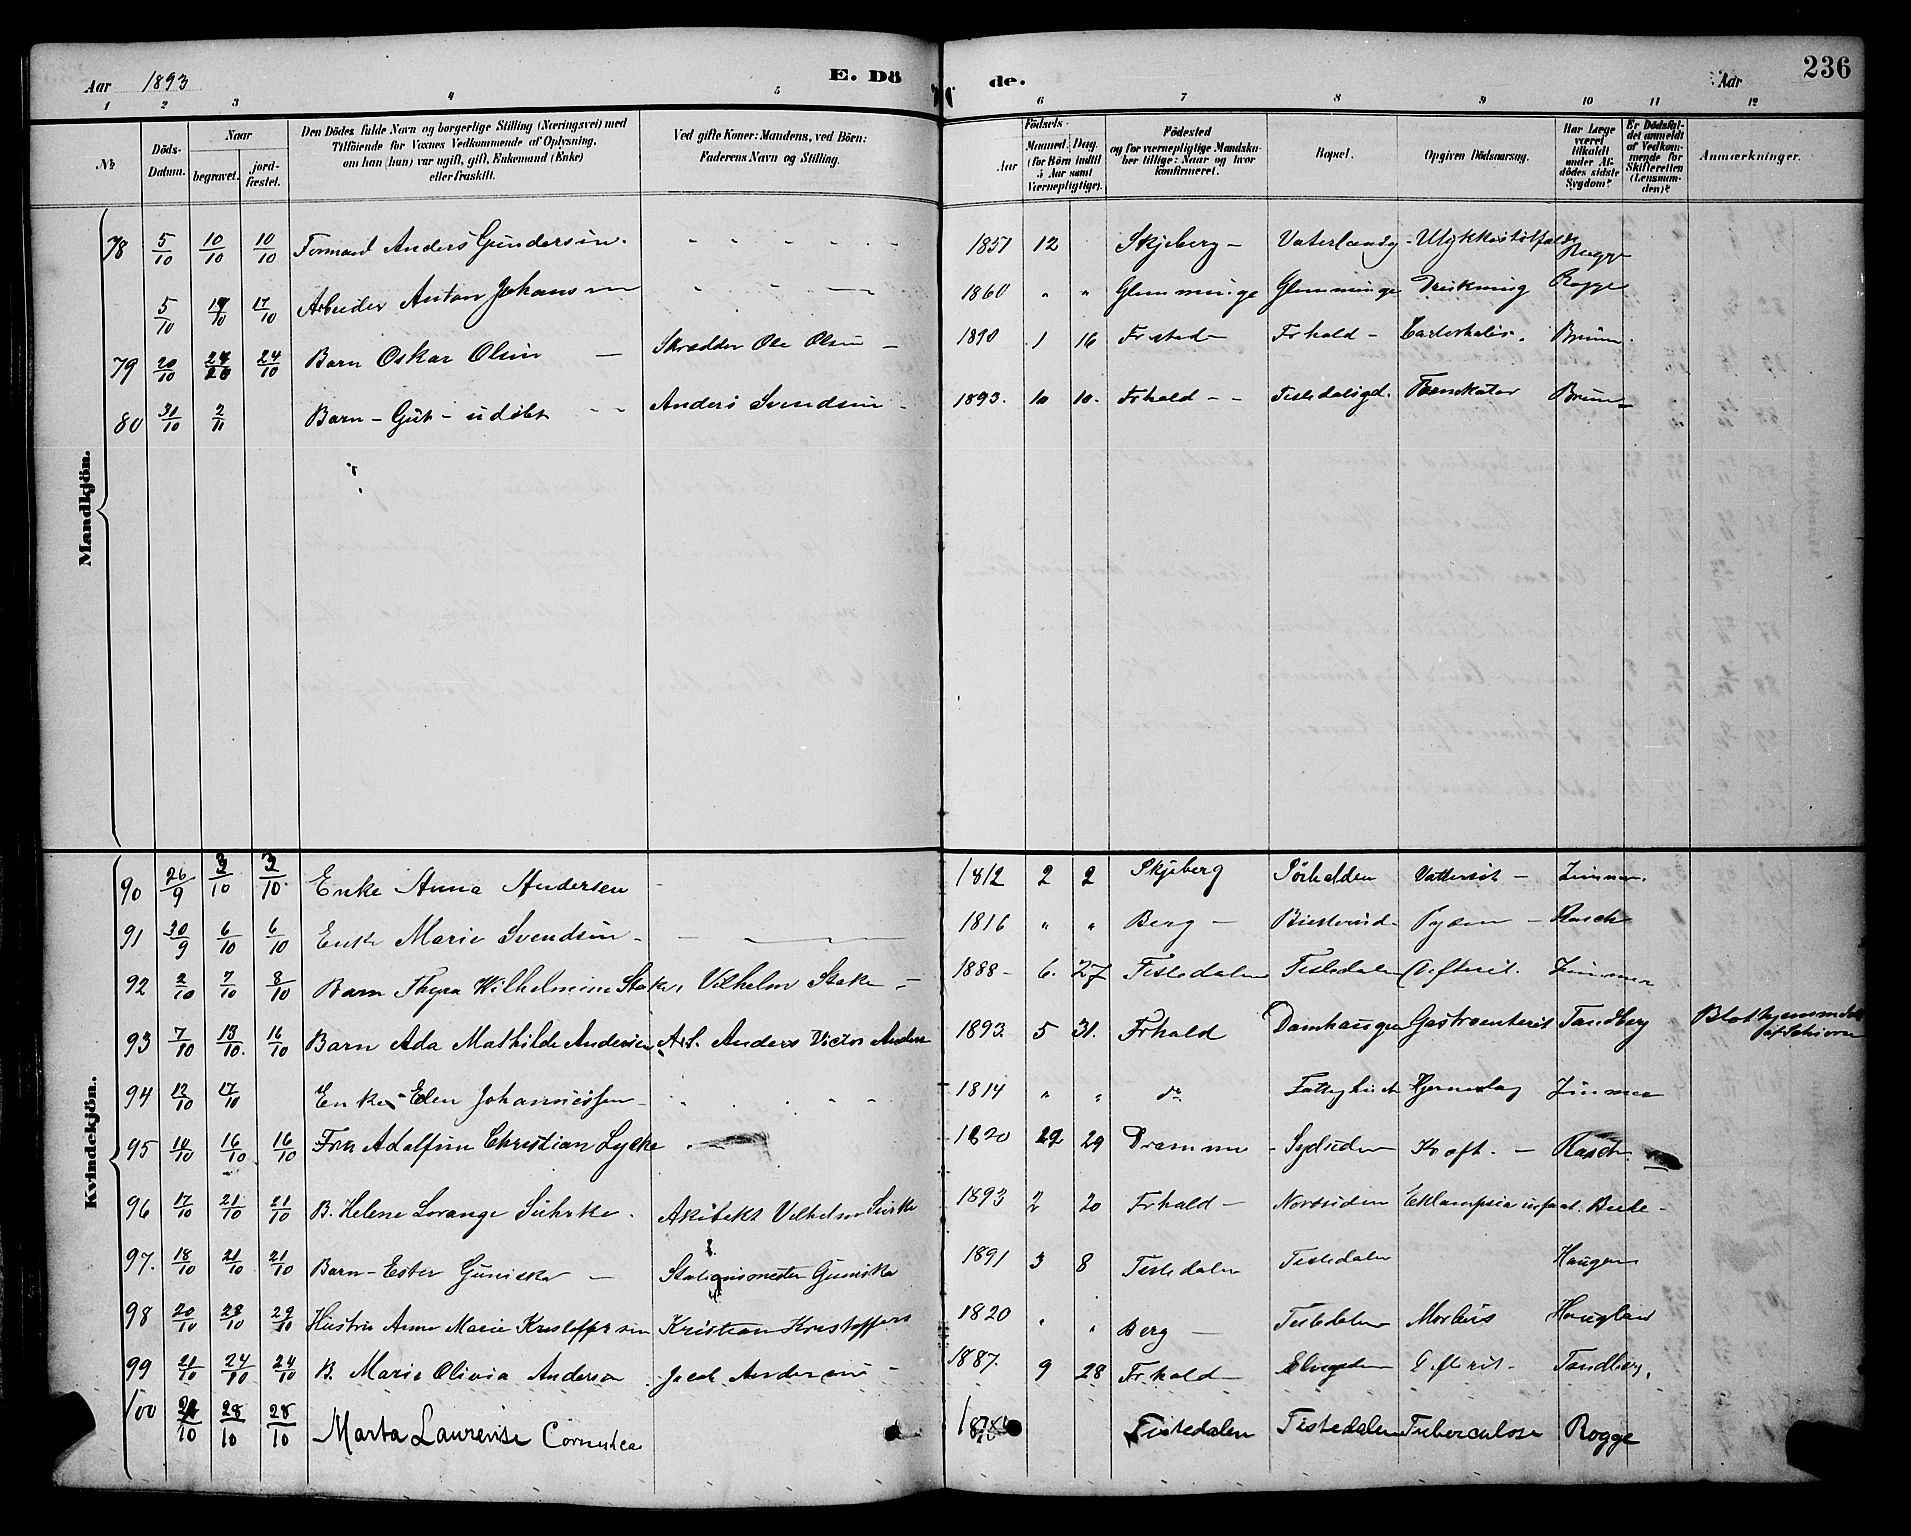 Aar 1893 E. Dö de. Aar 236
1 2 3 4 5 6 7 8 9 10 11 12
№ Döds-Datum. Naar begravet. jord-fæstet. Den Dödes fulde Navn og borgerlige Stilling (Næringsvei) med Tilföiende for Voxnes Vedkommende af Oplysning, om han (hun) var ugift, gift, Enkemand (Enke) eller fraskilt. Ved gifte Koner: Mandens, ved Börn: Faderens Navn og Stilling. Födsels- Aar Maaned. Dag (for Börn indtil 5 Aar samt Værnepligtige). Födested og for værnepligtige Mandskaber tillige: Naar og hvor konfirmeret. Bopæl. Opgiven Dödsaarsag. Har Læge været tilkaldt under Afdödes sidste Sygdom? Er Dödsfaldet anmeldt af Vedkommende for Skifteretten (Lensmanden)? Anmærkninger.
Mandkjön.
78 5/10 10/10 10/10 Tømmand Anders Gundersen. 1851 12 Skjeberg - Ulykkestilfælde Rogge
5/10 17/10 17/10 Arbeider Anton Johansen 1860 " " Glemminge Glemminge Drukning Rogge
79 20/10 24/10 Barn Oskar Olsen - Skrædder Ole Olsen - 1890 1 16 Frstad Frhald - Bruun.
80 31/10 2/11 Barn - Gut - udøbt - - Anders Svendsen - 1893. 10 10. Frhald - - Bruun
Kvindekjön.
90 26/9 3/10 3/10 Enke Anna Andersen - 1812 2 2 Skjeberg Vattersot - Zimmer.
91 30/9 6/10 6/10 Enke Marie Svendsen - 1816 " " Berg - Rasch
92 2/10 7/10 8/10 Barn Thyra Wilhelmine Stake, Vilhelm Stake - 1888 - 6. 27 Tistedalen Tistedalen Difterit. Zimmer
93 7/10 13/10. 16/10 Barn Ada Mathilde Andersen Arb. Anders Victor Anders 1893 5 31. Frhald Damhaugen Gastroenterit Tandberg Blot hjemmedøbt
94 12/10 17/10 Enke Elen Johannessen - 1814 " " do Fattighuset Hjerneslag Zimmer
95 14/10 16/10 16/10 Fru Adolfine Christian Lycke - 1820 29 Drammen - Sydsiden Kræft. - Rasch
96 17/10 21/10 21/10 B. Helene Lorange Sührke. Arkitekt Vilhelm Sürke 1893 2 20 Frhald - Nordsiden Eklampsia infant.
97. 18/10 21/10 21/10 Barn - Ester - Stationsmester 1891 3 8 Tistedalen Tistedalen Haugen
98 20/10 28/10 29/10 Hustru Anne Marie Kristoffersen Kristian Kristoffers 1820 " " Berg - Tistedalen Morbus Haugland
99 21/10 24/10 24/10 B. Marie Olivia Anderson Jacob Andersen - 1887. 9 28 Frhald - Difterit - Tandberg.
100 28/10 28/10 Marta Laurense Cornelia Tistedalen Tistedalen Tuberculose Rogge